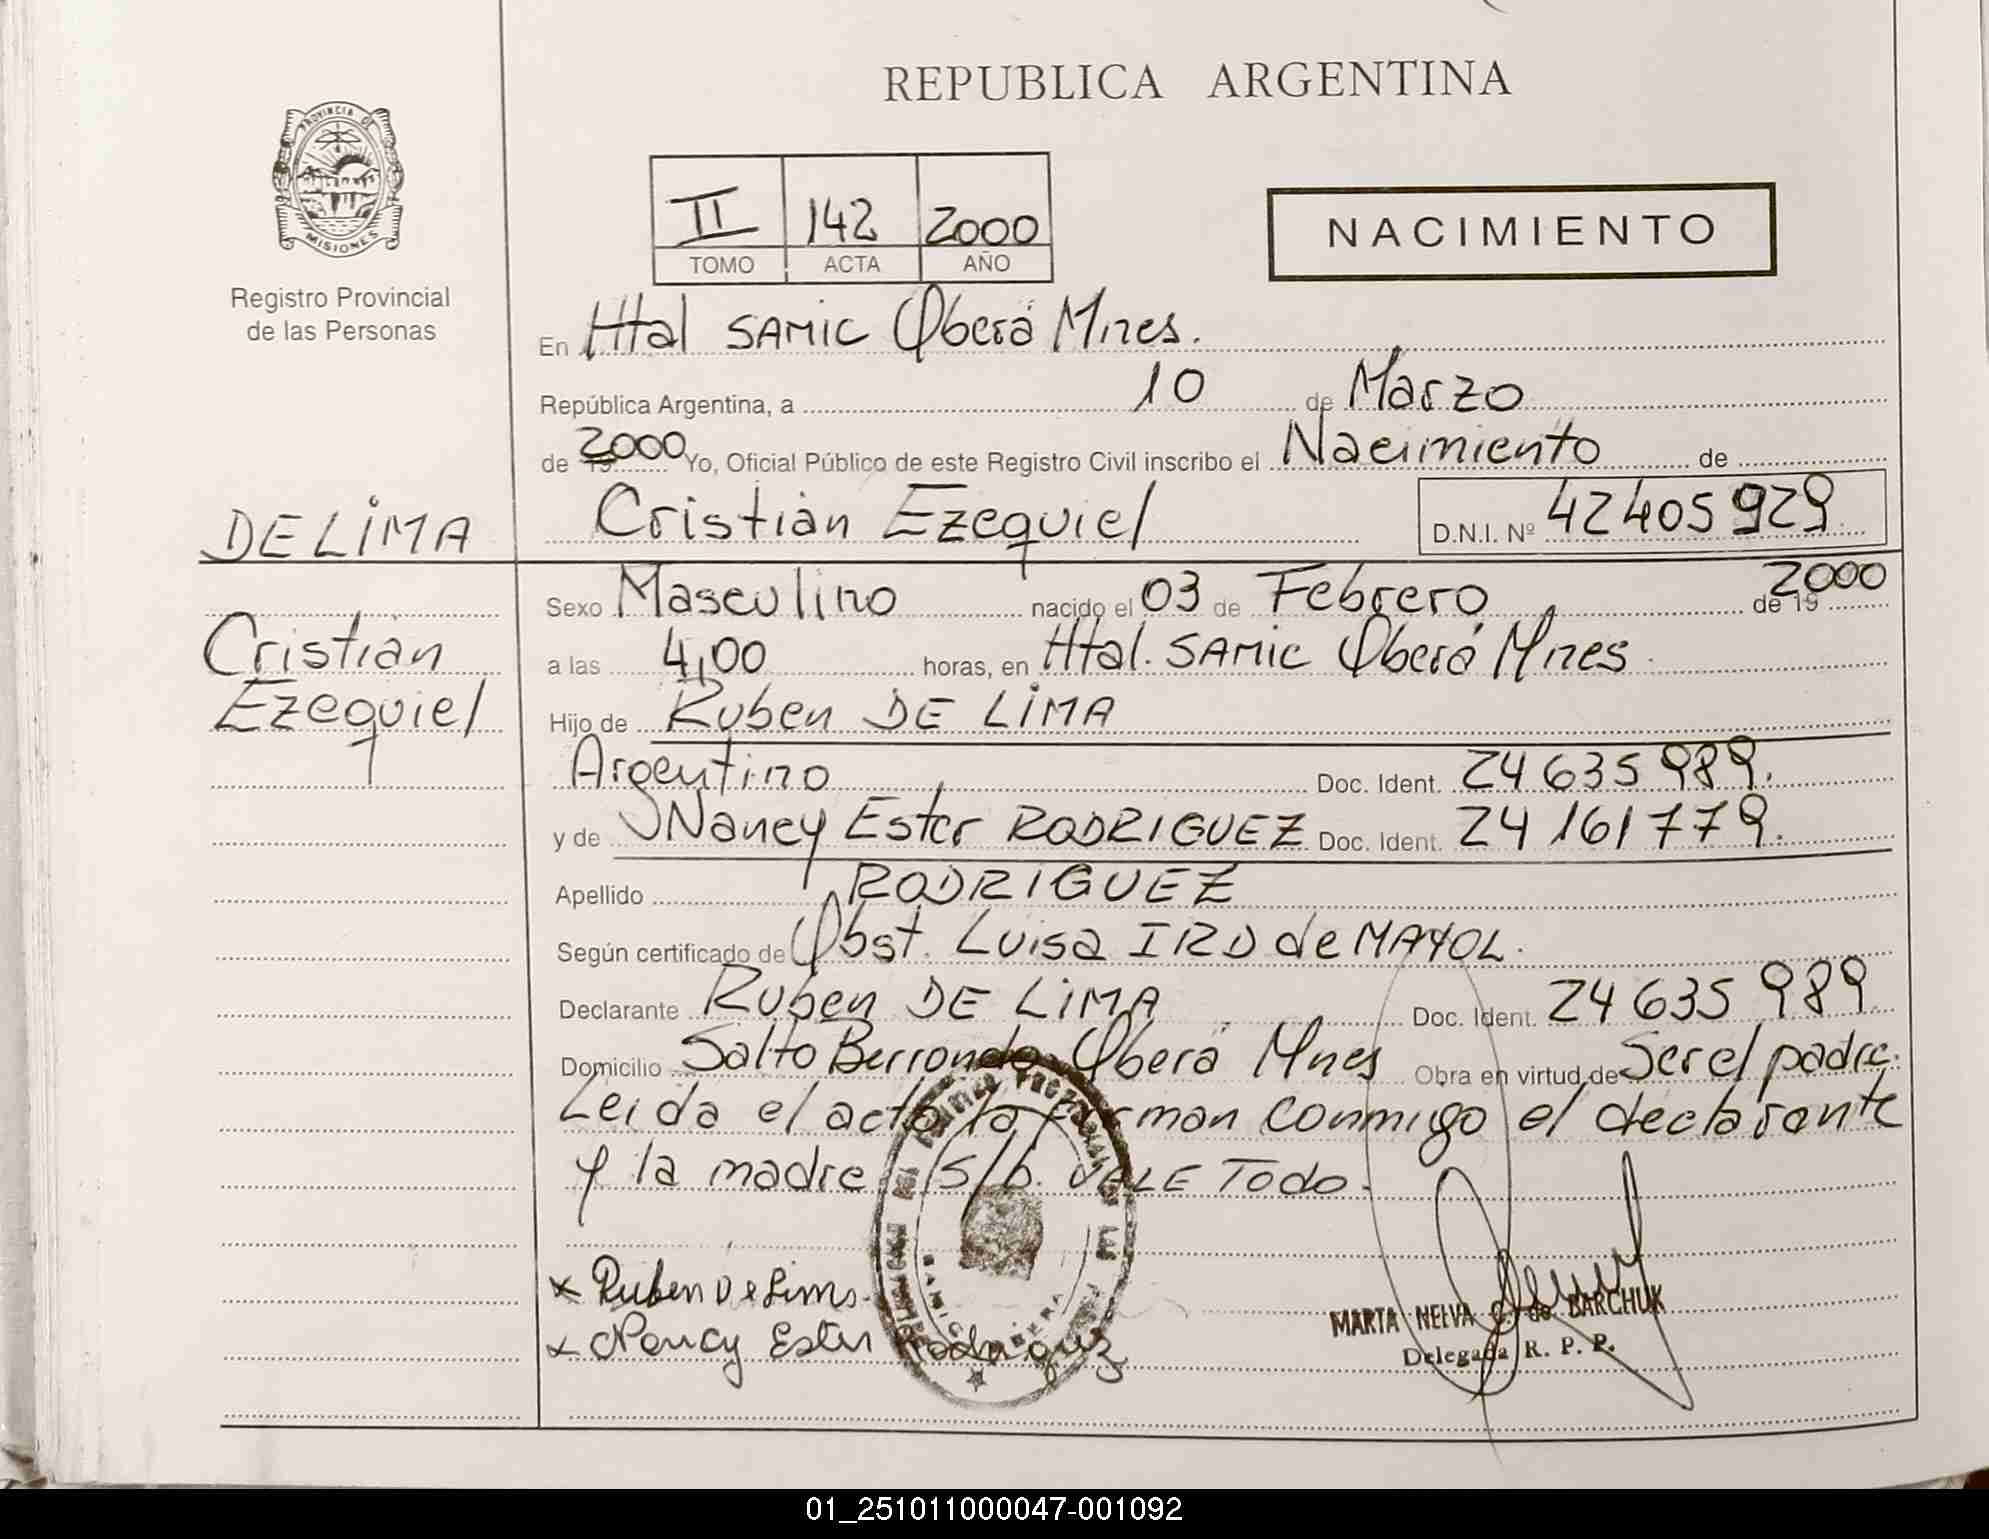 REPUBLICA ARGENTINA
PROVINCIA DE
MISIONES
Registro Provincial
de las Personas
II 142 2000
TOMO ACTA AÑO
NACIMIENTO
En Htal SAMIC Oberá Mnes.
República Argentina, a 10 de Marzo
de 2000 Yo, Oficial Público de este Registro Civil inscribo el Nacimiento de
DE LIMA Cristian Ezequiel D.N.I. Nº 42405929
Sexo Masculino nacido el 03 de Febrero de 19 2000
Cristian
a las 4,00 horas, en Htal. SAMIC Oberá Mnes
Ezequiel
Hijo de Ruben DE LIMA
Argentino Doc. Ident. 24 635 989.
y de Nancy Ester RODRIGUEZ Doc. Ident. 24 161 779.
Apellido RODRIGUEZ
Según certificado de Obst. Luisa IRD de MAYOL.
Declarante Ruben DE LIMA Doc. Ident. 24 635 989.
Domicilio Salto Berrondo Oberá Mnes Obra en virtud de Ser el padre.
Leida el acta la firman conmigo el declarante
y la madre S/b. VALE TODO.
x Ruben De Lima
x Nancy Ester Rodriguez
MARTA NELVA G. de BARCHUK
Delegada R. P. P.
01_251011000047-001092